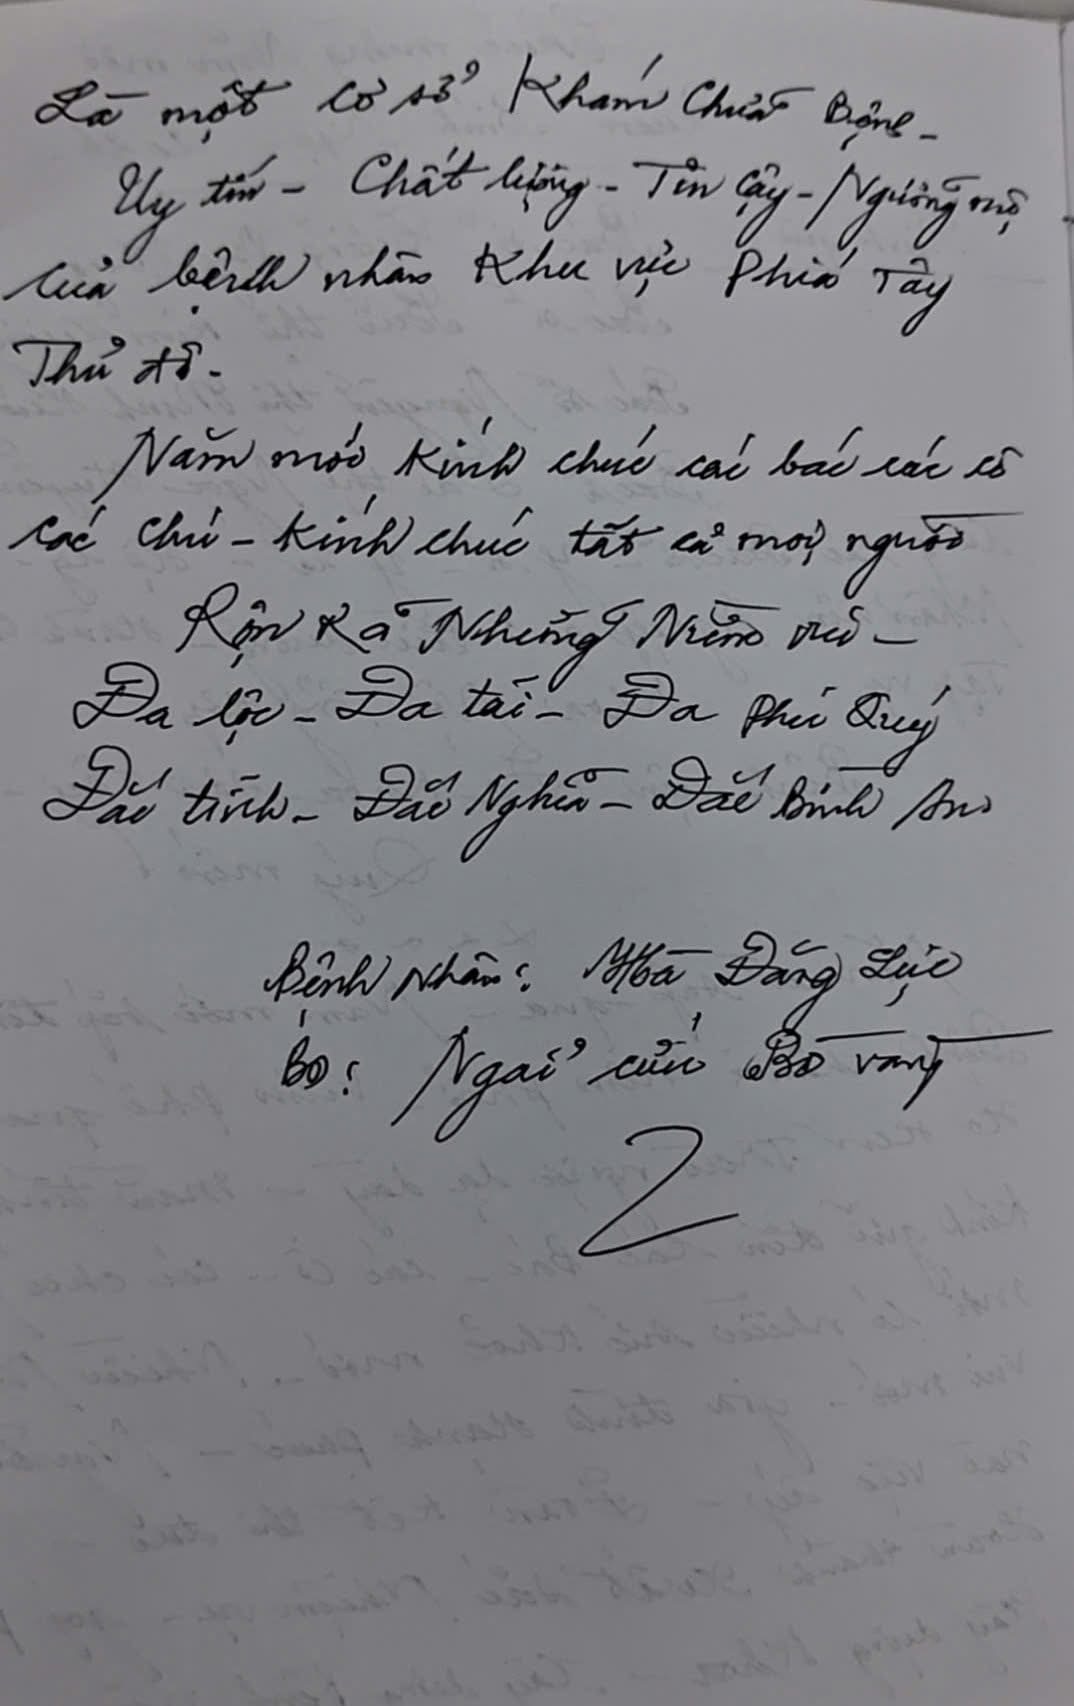 Là một cơ sở Khám Chữa Bệnh -
Uy tín - Chất lượng - Tin cậy - Ngưỡng mộ
của bệnh nhân Khu vực Phía Tây
Thủ đô -
Năm mới Kính chúc các bác các cô
các chú - Kính chúc tất cả mọi người
Rộn Rã Những Niềm vui -
Đa lộc - Đa tài - Đa Phú Quý
Đắc tình - Đắc Nghĩa - Đắc Bình An
Bệnh Nhân: Hà Đăng Lực
Ngải cứu Bờ vang